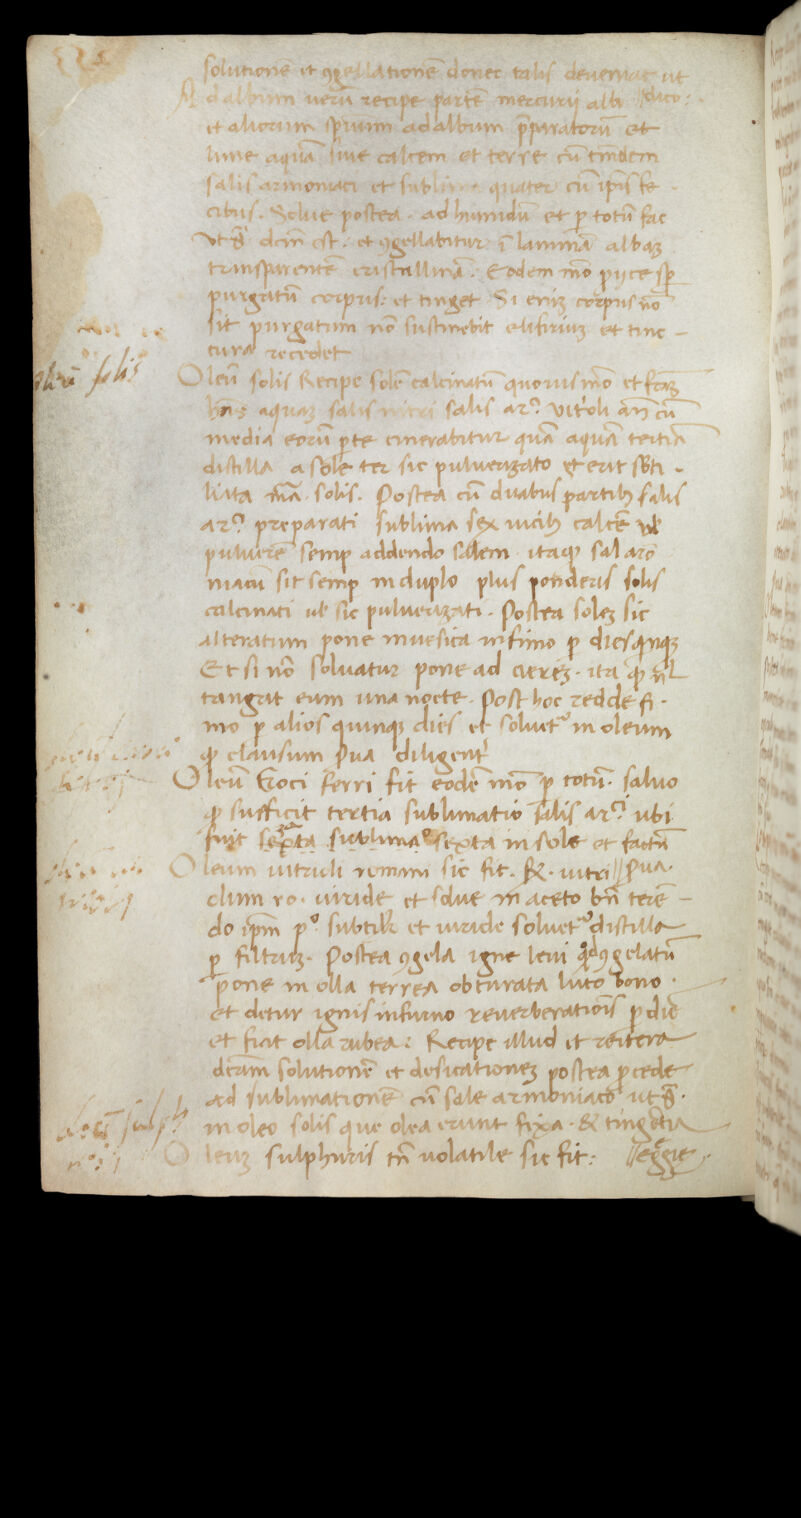 solutionē et ɔgellationē donec talis deveniat ut
Ad album uerū recipe partē mercurij albi dico:
et aliorum spiuum ad album p̄paratorū et
lune aquā siue calcem et terre cū tm̄dem
salis armoniaci et sublima quater cū ip̄is fe
cibus. Solue postea. ad humidū et p totū fac
ut s̄ dcm̄ est. et ɔgellabitur ī laminā albaꝫ
transparentē cristallinā. Eodem mō proijce sr̄
purgatū corpus: et tinget Si eniꝫ corpus nō
sit purgatum nō sustinebit elisiriuꝫ et tinc-
tura recedet
oleū solis
Oleū solis Recipe solē calcinatū quouis mō et
aquaꝫ salis nitri salis ar.º vit'oli an̄ cū
media eorū p̄te cinerabitur quā aquā tertiā
distilla a sole ter sic puluerizato et erit sb̄ti-
liata mā. solis. Postea cū duabus partibꝫ salis
ar.º preparati sublima sex uicibꝫ calcē ul̄
puluerē semp addendo salem. itaqꝫ sal aro
niacū sit semp in duplo plus ponderis solis
calcinati ul̄ sic puluerizati. Postea soleꝫ sic
alteratum pone in uesica in fimo p dies qnqꝫ
Et si nō soluatur pone ad cinereꝫ. ita ꝙ nl̄
tangat eum una nocte. Post hoc redde fi.
mo p alios quinqꝫ dies et soluet' in oleum
ꝙ clausum s̄ua diligent'
Oleū Croci ferri fit eodē mō p totū. saluo
ꝙ sufficit tertia sublimatio salis ar.ⁱ ubi
fuit sexta sublimaº sexta in sole et factū
Oleum uitrioli romani sic fit. R̄. uitri//s̄ua.
olum ro. uiride et solue in aceto bn̄ terē-
do ip̄m pº. subtilr̄ et uiride soluet' distilla
p filtruꝫ. Postea ɔgela igne leui ɔgelatū
pone in olla terrea obturata luto bono.
et detur ignis in furno reuerberationis p diē
et fiat olla rubea: Recipe illud et reitera
dc̄am solutionē et desicationeꝫ postea p̄cede
ad sublimationē cū sale armoniaco ut s̄.
in oleo solis que olea erunt fixa. & tingētia
Oleuꝫ sulphuris tn̄ uolatile sic fit: Legie.